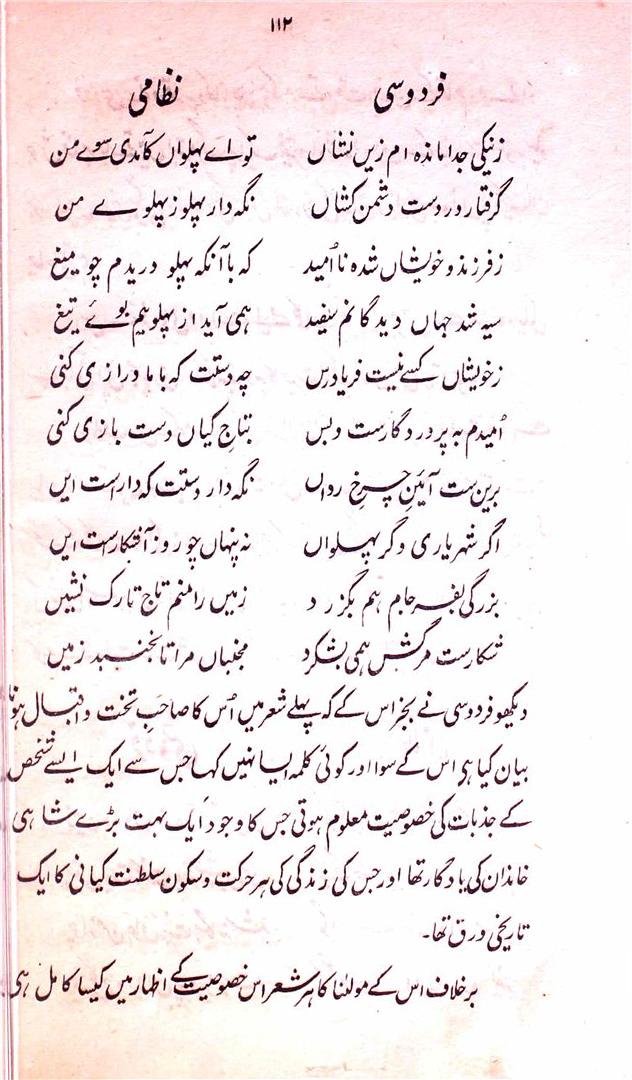 ۱۱۲
فردوسی نظامی
زنیکی جدا ماندہ ام زیں نشاں تو اے پہلواں کآمدی سوے من
گرفتار در دست دشمن کشاں نگہ دار پہلو ز پہلوے من
ز فرزند و خویشاں شدہ نا اُمید کہ با آنکہ پہلو دریدم چو میغ
سیہ شد جہاں دیدگانم سفید ہمی آید از پہلویم بوئے تیغ
زخویشاں کسے نیست فریادرس چہ دستت کہ با ما درازی کنی
اُمیدم بہ پروردگارست و بس بتاجِ کیاں دست بازی کنی
برین ست آئینِ چرخِ رواں نگہ دار دستت کہ داراست ایں
اگر شہریاری و گر پہلواں نہ پنہاں چو روز آشکارست ایں
بزرگی بفرجام ہم بگزرد زمیں را منم تاج تارک نشیں
شکارست مرگش ہمی بشکرد مجنباں مرا تا نجنبد زمیں
دیکھو فردوسی نے بجز اس کے کہ پہلے شعر میں اُس کا صاحبِ تخت و اقبال ہونا
بیان کیا ہی اس کے سوا اور کوئی کلمہ ایسا نہیں کہا جس سے ایک ایسے شخص
کے جذبات کی خصوصیت معلوم ہوتی جس کا وجود ایک بہت بڑے شاہی
خاندان کی یادگار تھا اور جس کی زندگی کی ہر حرکت و سکون سلطنت کیانی کا ایک
تاریخی ورق تھا۔
برخلاف اس کے مولٰنا کا ہر شعر اس خصوصیت کے اظہار میں کیسا کامل ہی